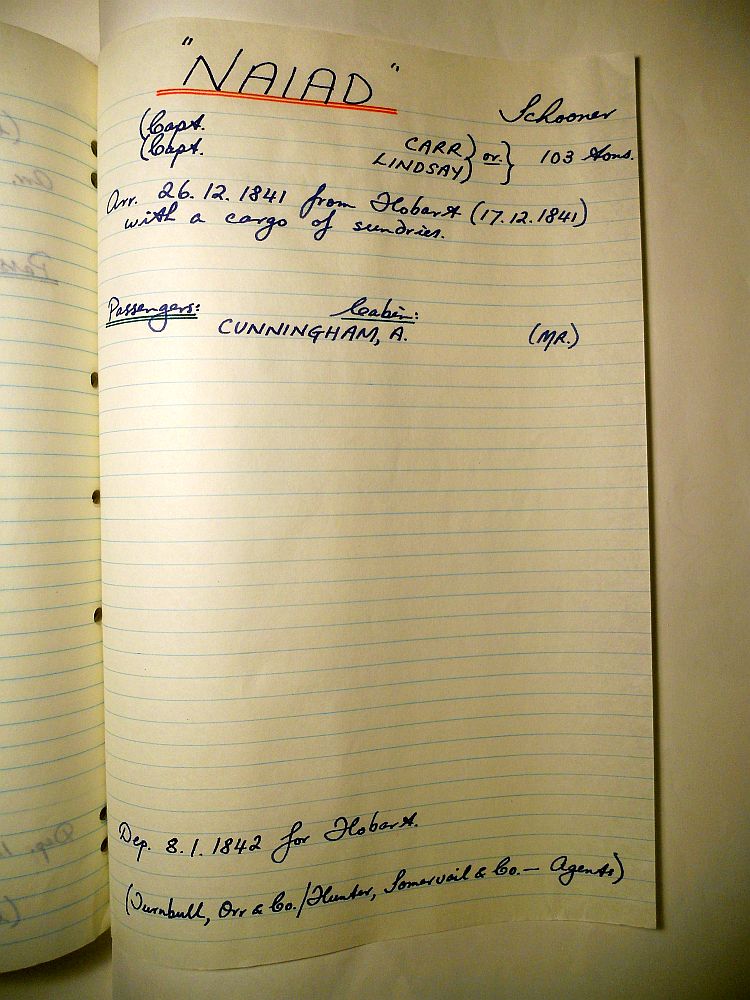 "NAIAD"
Schooner
(Capt. CARR) or } 103 tons.
(Capt. LINDSAY)
Arr. 26.12.1841 from Hobart (17.12.1841)
with a cargo of sundries.
Passengers: Cabin:
CUNNINGHAM, A. (MR.)
Dep. 8.1.1842 for Hobart.
(Turnbull, Orr & Co./Hunter, Somervail & Co. — Agents)